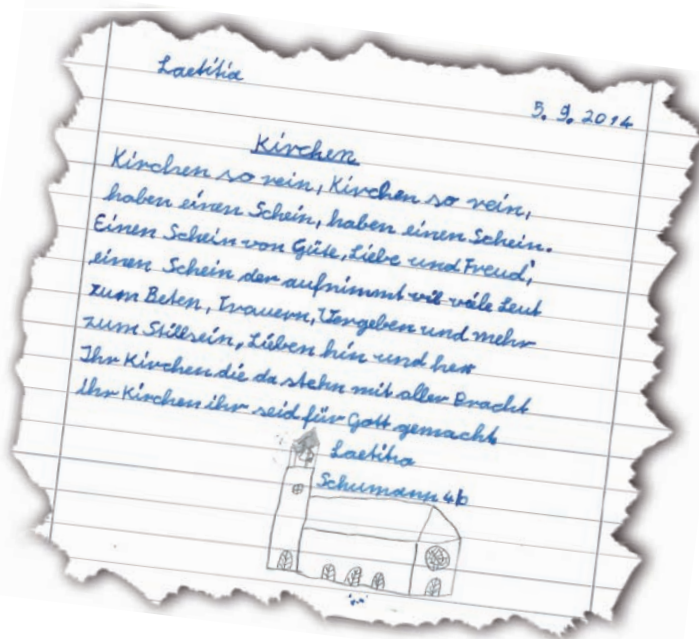 Laetitia
5. 9. 2014
Kirchen
Kirchen so rein, Kirchen so rein,
haben einen Schein, haben einen Schein.
Einen Schein von Güte, Liebe und Freud',
einen Schein der aufnimmt vil viele Leut
zum Beten, Trauern, Vergeben und mehr
zum Stillsein, Lieben hin und her
Ihr Kirchen die da stehn mit aller Bracht
ihr Kirchen ihr seid für Gott gemacht
Laetitia
Schumann 4b